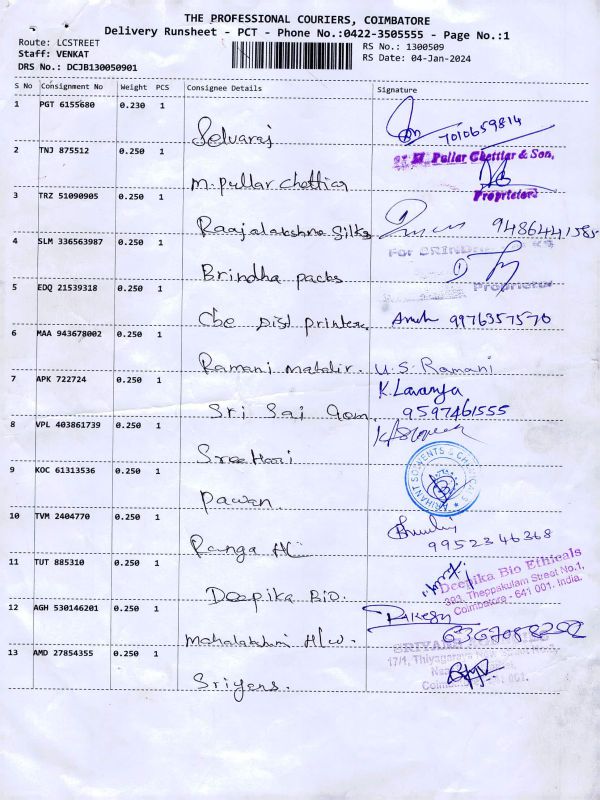 THE PROFESSIONAL COURIERS, COIMBATORE
Delivery Runsheet - PCT - Phone No.:0422-3505555 - Page No.:1
Route: LCSTREET
RS No.: 1300509
Staff: VENKAT
RS Date: 04-Jan-2024
DRS No.: DCJB130050901
S No Consignment No Weight PCS Consignee Details Signature
1 PGT 6155680 0.230 1 Selvaraj 7010659814
2 TNJ 875512 0.250 1 M. Pullar Chettiar M. Pullar Chettiar & Son,
Proprietor
3 TRZ 51090905 0.250 1 Raajalakshme Silks 9486441585
4 SLM 336563987 0.250 1 Brindha packs For BRINDHA
Proprietor
5 EDQ 21539318 0.250 1 Cbe Dist printers 9976357570
6 MAA 943678002 0.250 1 Ramani U.S. Ramani
7 APK 722724 0.250 1 Sri Sai Gom. K. Lavanya
9597461555
8 VPL 403861739 0.250 1 Sree Hari
9 KOC 61313536 0.250 1 Pawan. ARIHANT SOLVENTS & CHEMICALS
10 TVM 2404770 0.250 1 Ranga 9952346368
11 TUT 885310 0.250 1 Deepika Bio. Deepika Bio Ethicals
393, Theppakulam Street No.1,
Coimbatore - 641 001. India.
12 AGH 530146201 0.250 1 Mahalakshmi H/w. Rakesh
13 AMD 27854355 0.250 1 Sriyens. 17/1, Thiyagaraya